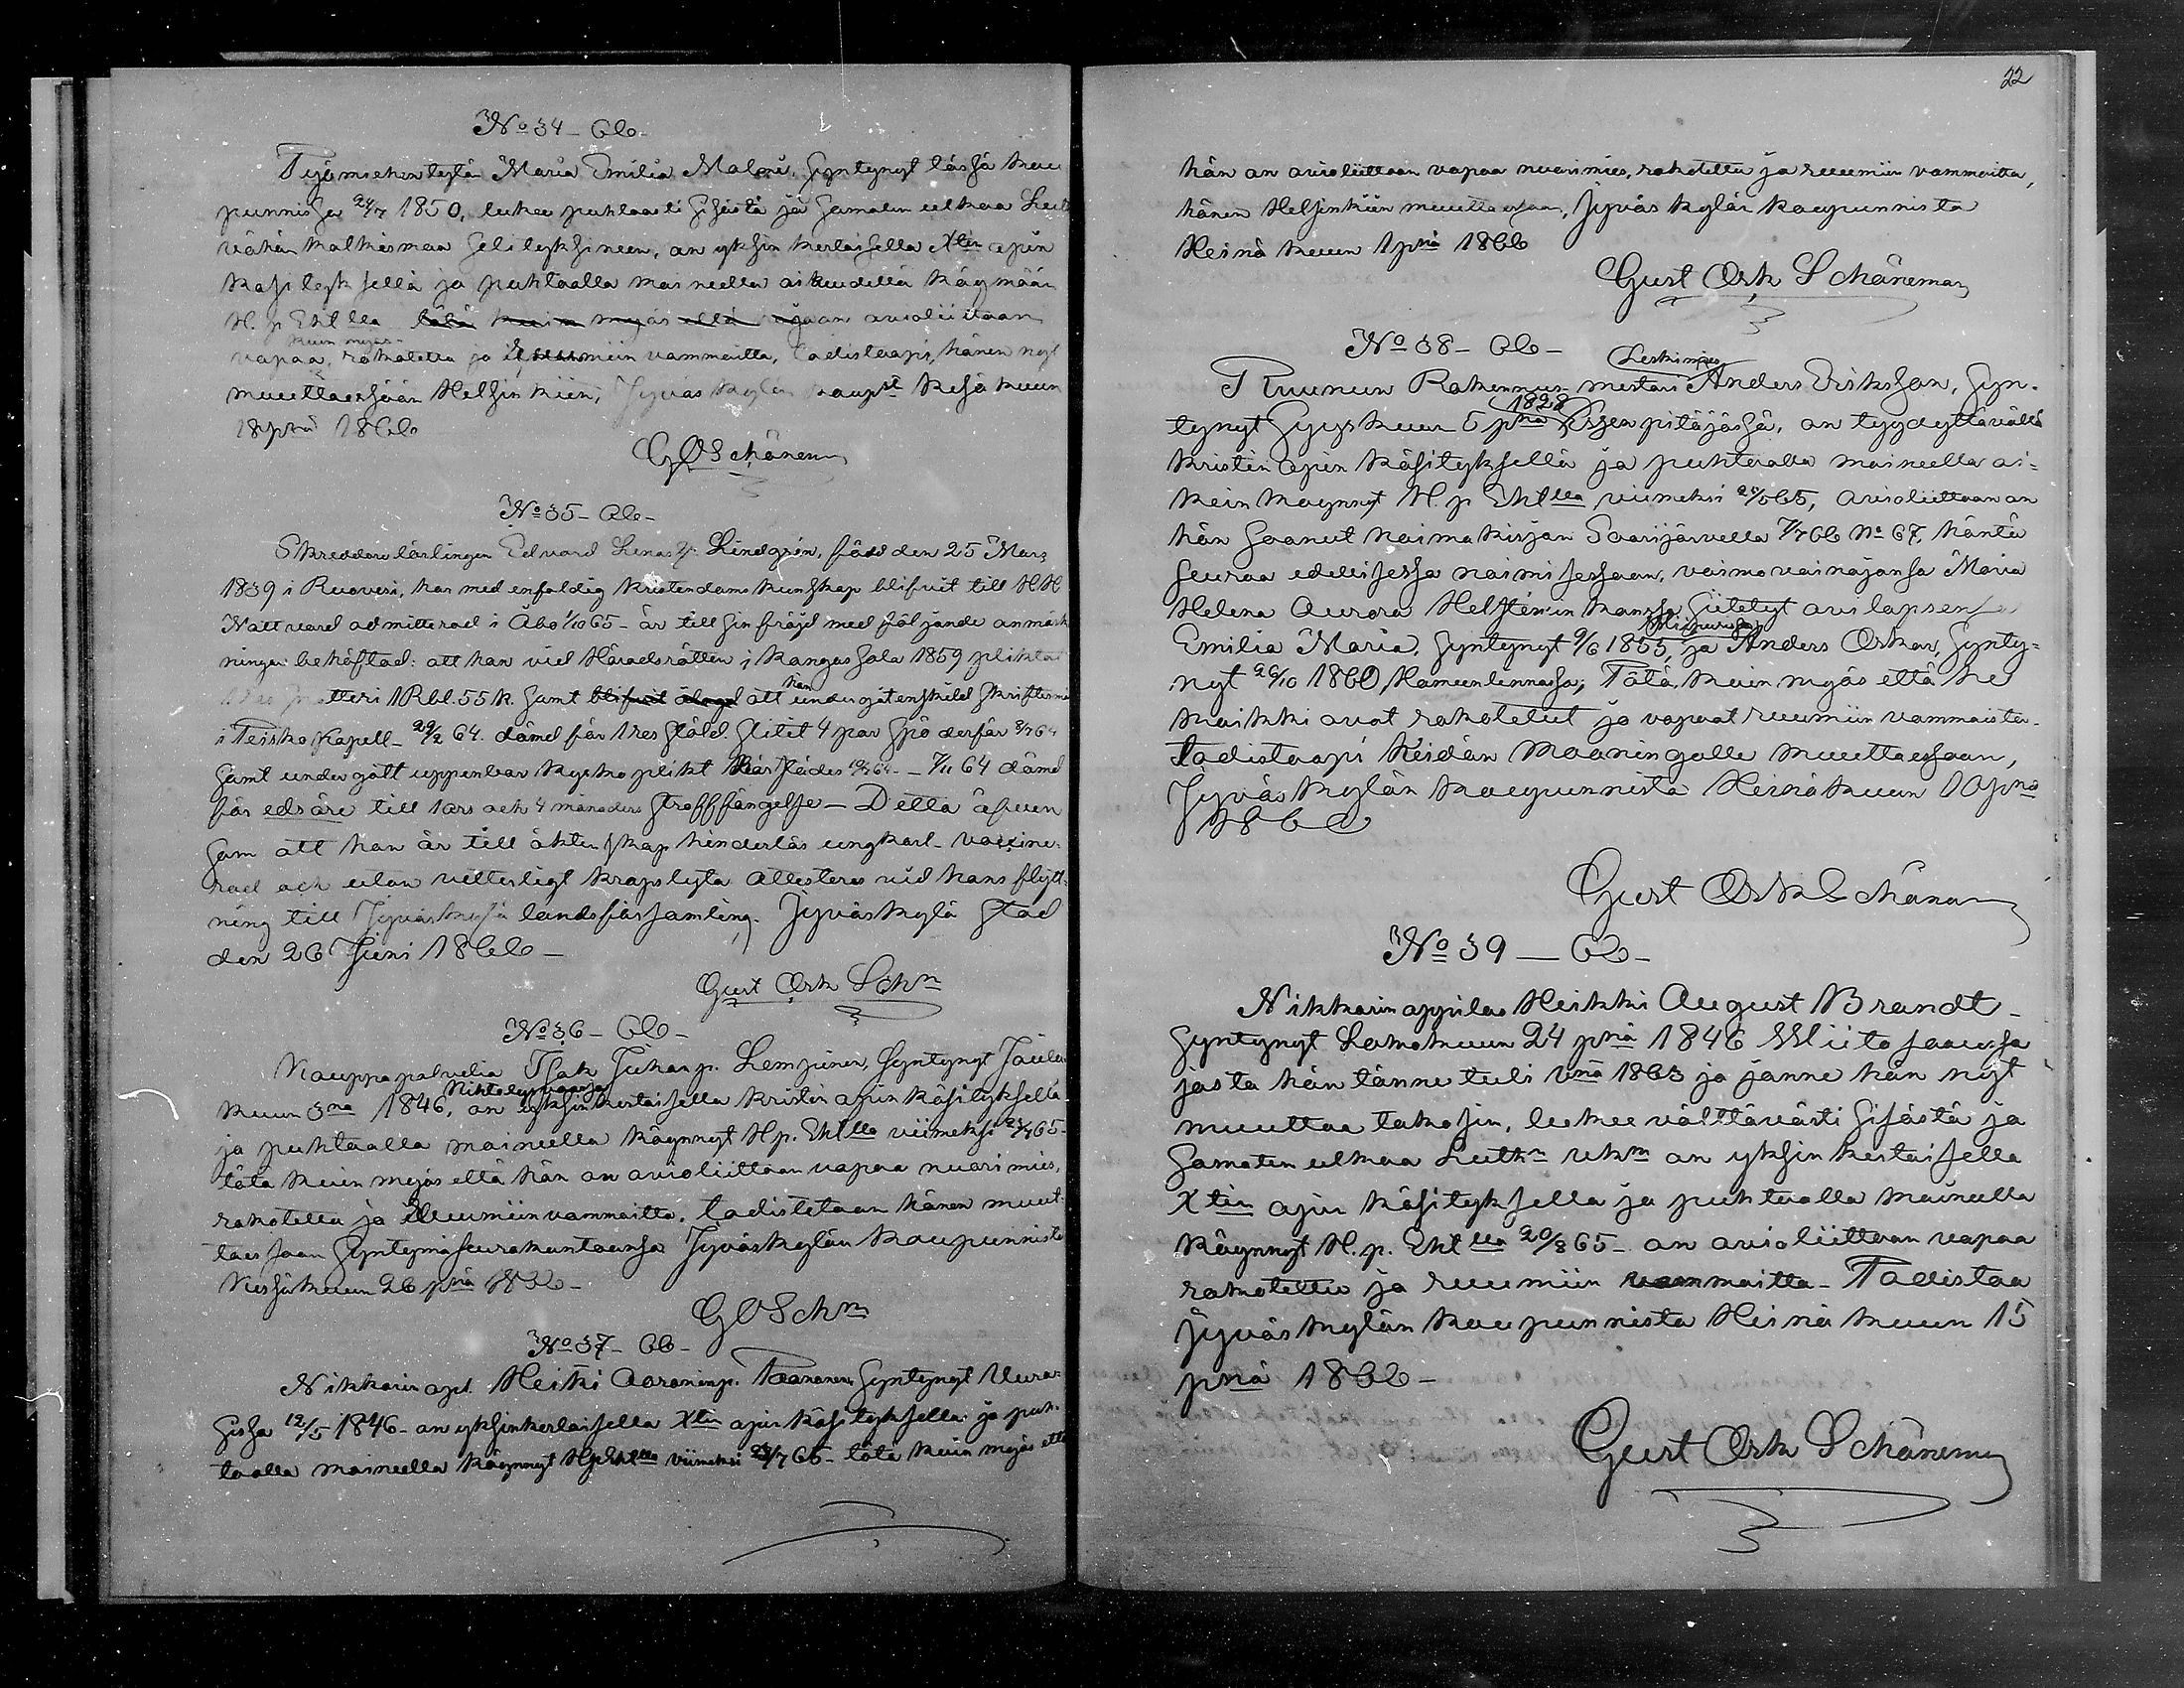 No 34 - 66 -
Työmiehen tytär Maria Emilia Malmi, Syntynyt tässä kau
punnissa 24/7 1850, lukee puhtaasti Sisästä ja Samaten ulkoa Lut
vähän katkismaa Selityksineen, on yksin kertaisella Xtin opin
käsityksellä ja puhtaalla maineella oikeudella käymään
H. p. Ehtlla on avioliittoon
kuin myös
vapaa, rokotettu ja ruumiin vammoitta, todistaapi, hänen nyt
muuttaessaan Helsinkiin, Jyväskylän kaupst Kesä kuun
18 pnä 1866
G O Schöneman
No 35 - 66 -
Skreddare lärlingen Edvard Lindgrén, född den 25 Mars
1839 i Ruovesi, har med enfaldig kristendoms kunskap blifvit till HH
Nattvard admitterad i Åbo 1/10 65 - är till sin fräjd med följande anmärk
ningar behäftad: att han vid Häradsrätten i Kangasala 1859 pliktat
1 Rbl. 55 k. samt blifvit att han undergåtenskild skriftermå
i Teisko Kapell - 29/2 64. dömd för 1 res stöld. slitit 4 par spö derför 8/7 64
samt undergått uppenbar kyrkoplikt - 7/11 64 dömd
för edsöre till 1 års och 4 månaders straffängelse - Detta äfven
som att han är till äktenskap hinderlös ungkarl - vaccine-
rad och utan vetterligt kropslyte attesteras vid hans flytt-
ning till Jyväskylä landsförsamling. Jyväskylä Stad
den 26 Juni 1866 -
Gust Osk Schn
No 36 - 66 -
Kauppapalvelia Isak Juhan p. Lempinen, Syntynyt Joulu
kuun 3na 1846, on yksin kertaisella kristin opin käsityksellä
ja puhtaalla maineella käynnyt Hp. Ehtlla viimeksi 23/7 65 -
tätä kuin myös että hän on avioliittoon vapaa nuori mies,
rokotettu ja ruumiin vammoitta, todistetaan hänen muut-
taessaan Syntymäseurakuntaansa Jyväskylän kaupunnista
Kesäkuun 26 pnä 1866 -
G O Schn
No 37 - 66 -
Nikkarin opl. Heikki Aaroninp. Paananen Syntynyt Uura-
sissa 12/5 1846 - on yksinkertaisella Xtin opin käsityksellä ja puh-
taalla maineella käynnyt Hp Ehtlla viimeksi 23/7 65 - tätä kuin myös että
22
hän on avioliittoon vapaa nuorimies, rokotettu ja ruumiin vammoitta,
hänen Helsinkiin muuttaessaan, Jyväskylän kaupunnista
Heinä kuun 1 pnä 1866
Gust Osk Schöneman
No 38 - 66 -
Leskimies
Ruunun Rakennus mestari Anders Eriksson, Syn-
1828
tynyt Syyskuun 5 pnä pitäjässä, on tyydyttävällä
kristin opin käsityksellä ja puhtaalla maineella oi-
kein käynnyt H. p. Ehtlla viimeksi 65, Avioliittoon on
hän saanut naimakirjan Saarijärvellä 7/7 66 No 67, häntä
seuraa edellisessä naimisessaan, vaimovainajansa Maria
Helena Aurora Helsténin kanssa siitetyt aviolapsensa
Emilia Maria, Syntynyt 9/6 1855, ja Anders Oskar, Synty-
nyt 26/10 1860, Hämeenlinnassa; Tätä, kuin myös että he
kaikki ovat rokotetut ja vapaat ruumiin vammoista
todistaapi heidän Maaningalle muuttaessaan,
Jyväskylän kaupunnista Heinäkuun 10 pnä
1866
Gust Osk Schöneman
No 39 - 66 -
Nikkarin oppilas Heikki August Brandt -
Syntynyt Lokakuun 24 pnä 1846 Wiitasaaressa
josta hän tänne tuli vnä 1863 ja jonne hän nyt
muuttaa takasin, lukee välttävästi Sisästä ja
Samaten ulkoa Luthn vkm on yksin kertaisella
Xtin opin käsityksellä ja puhtaalla maineella
käynnyt H. p. Ehtlla 20/8 65 - on avioliittoon vapaa
rokotettu ja ruumiin vammoitta - Todistaa
Jyväskylän kaupunnista Heinä kuun 15
pnä 1866 -
Gust Osk Schöneman